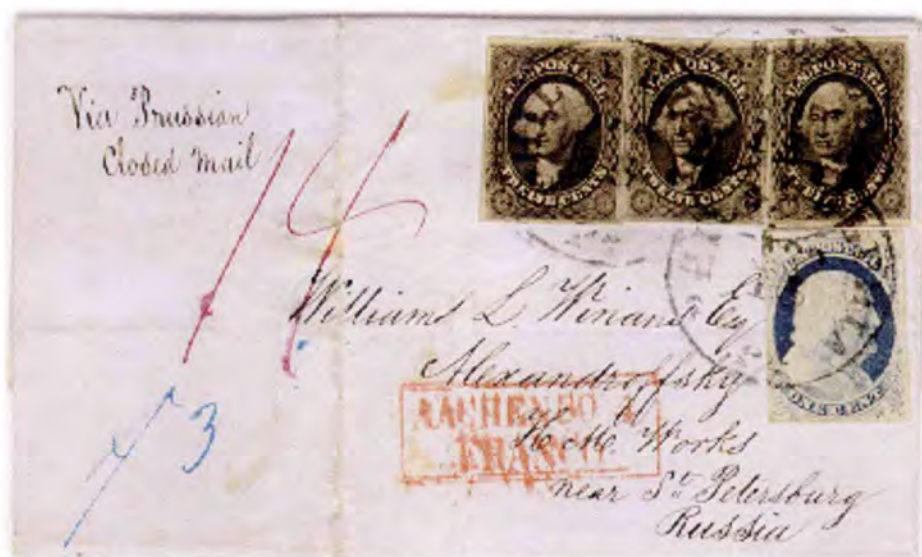 Via Prussian
Closed Mail
U.S. POSTAGE
TWELVE CENTS
U.S. POSTAGE
TWELVE CENTS
U.S. POSTAGE
TWELVE CENTS
Williams L. Winans Esq
Alexandroffsky
Works
near St. Petersburg
Russia
AACHEN
FRANCO
3